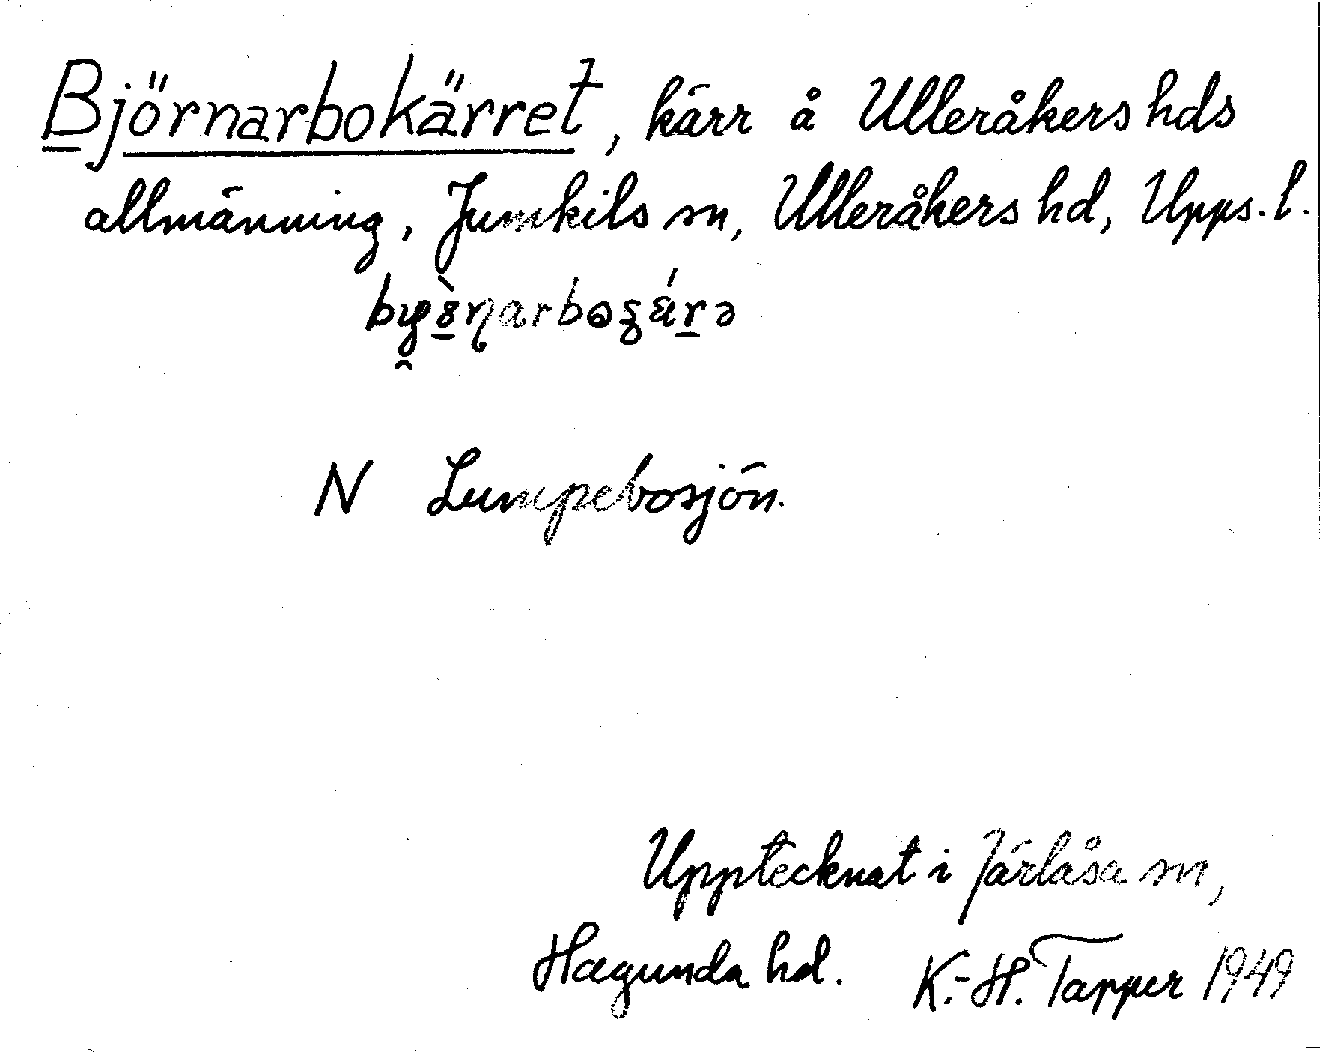 Björnarbokärret, kärr å Ulleråkers hds
allmänning, Jumkils sn, Ulleråkers hd, Upps. l.
N Lumpebosjön.
Upptecknat i Järlåsa sn,
Hagunda hd. K.-H. Tapper 1949